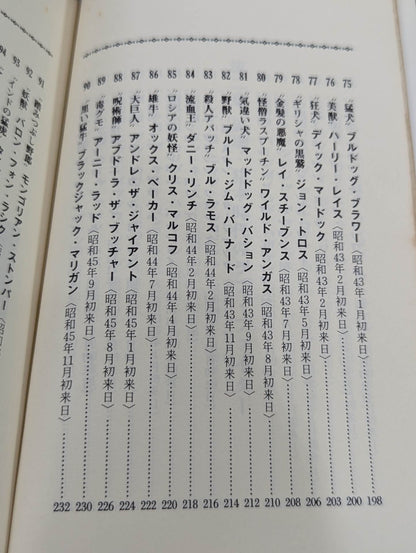 75 “猛犬” ブルドッグ・ブラワー〈昭和43年1月初来日〉 198
76 “美獣” ハーリー・レイス〈昭和43年2月初来日〉 200
77 “狂犬” ディック・マードック〈昭和43年2月初来日〉 204
78 “ギリシャの黒鷲” ジョン・トロス〈昭和43年5月初来日〉 206
79 “金髪の悪魔” レイ・スチーブンス〈昭和43年7月初来日〉 208
80 “怪僧ラスプーチン” ワイルド・アンガス〈昭和43年8月初来日〉 210
81 “気違い犬” マッドドッグ・バション〈昭和43年9月初来日〉 212
82 “野獣” ブルート・ジム・バーナード〈昭和43年11月初来日〉 214
83 “殺人アパッチ” ブル・ラモス〈昭和44年2月初来日〉 216
84 “流血王” ダニー・リンチ〈昭和44年2月初来日〉 218
85 “ロシアの妖怪” クリス・マルコフ〈昭和44年4月初来日〉 220
86 “雄牛” オックス・ベーカー〈昭和44年7月初来日〉 222
87 “大巨人” アンドレ・ザ・ジャイアント〈昭和45年1月初来日〉 224
88 “呪術師” アブドーラ・ザ・ブッチャー〈昭和45年8月初来日〉 226
89 “毒グモ” アーニー・ラッド〈昭和45年9月初来日〉 230
90 “黒い猛牛” ブラックジャック・マリガン〈昭和45年11月初来日〉 232
91 “踏みつぶし野郎” モンゴリアン・ストンパー〈昭和
92 “妖獣” バロン・フォン・ラシク〈昭和
93
94